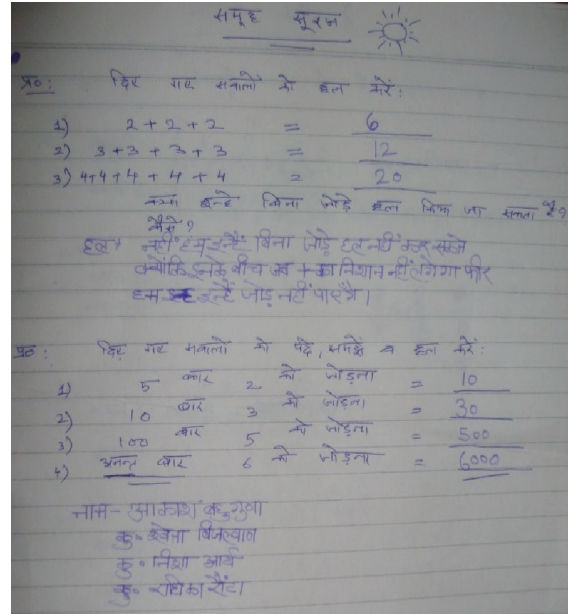 समूह सूरज
प्र०: दिए गए सवालों को हल करें:
1) 2 + 2 + 2 = 6
2) 3 + 3 + 3 + 3 = 12
3) 4 + 4 + 4 + 4 + 4 = 20
क्या इन्हे बिना जोड़े हल किया जा सकता है?
कैसे?
हल: नहीं हम इन्हें बिना जोड़े हल नहीं कर सकते
क्योंकि इनके बीच जब + का निशान नहीं लगेगा फिर
हम इन्हें जोड़ नहीं पाएंगे।
प्र०: दिए गए सवालो को पढें, समझें व हल करें:
1) 5 बार 2 को जोड़ना = 10
2) 10 बार 3 को जोड़ना = 30
3) 100 बार 5 को जोड़ना = 500
4) अनन्त बार 6 को जोड़ना = 6000
नाम- आकाश बहुगुणा
कु० श्वेता बिजल्वाण
कु० निशा आर्य
कु० राधिका